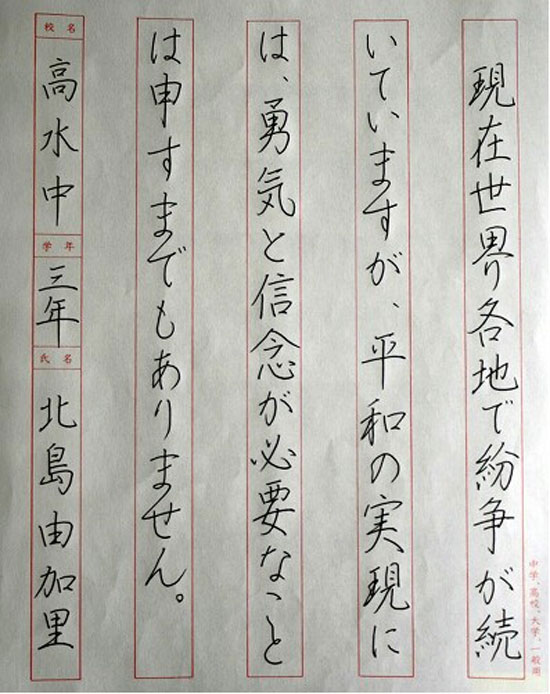 現在世界各地で紛争が続
いていますが、平和の実現に
は、勇気と信念が必要なこと
は申すまでもありません。
校名
高水中
学年
三年
氏名
北島由加里
中学、高校、大学、一般用